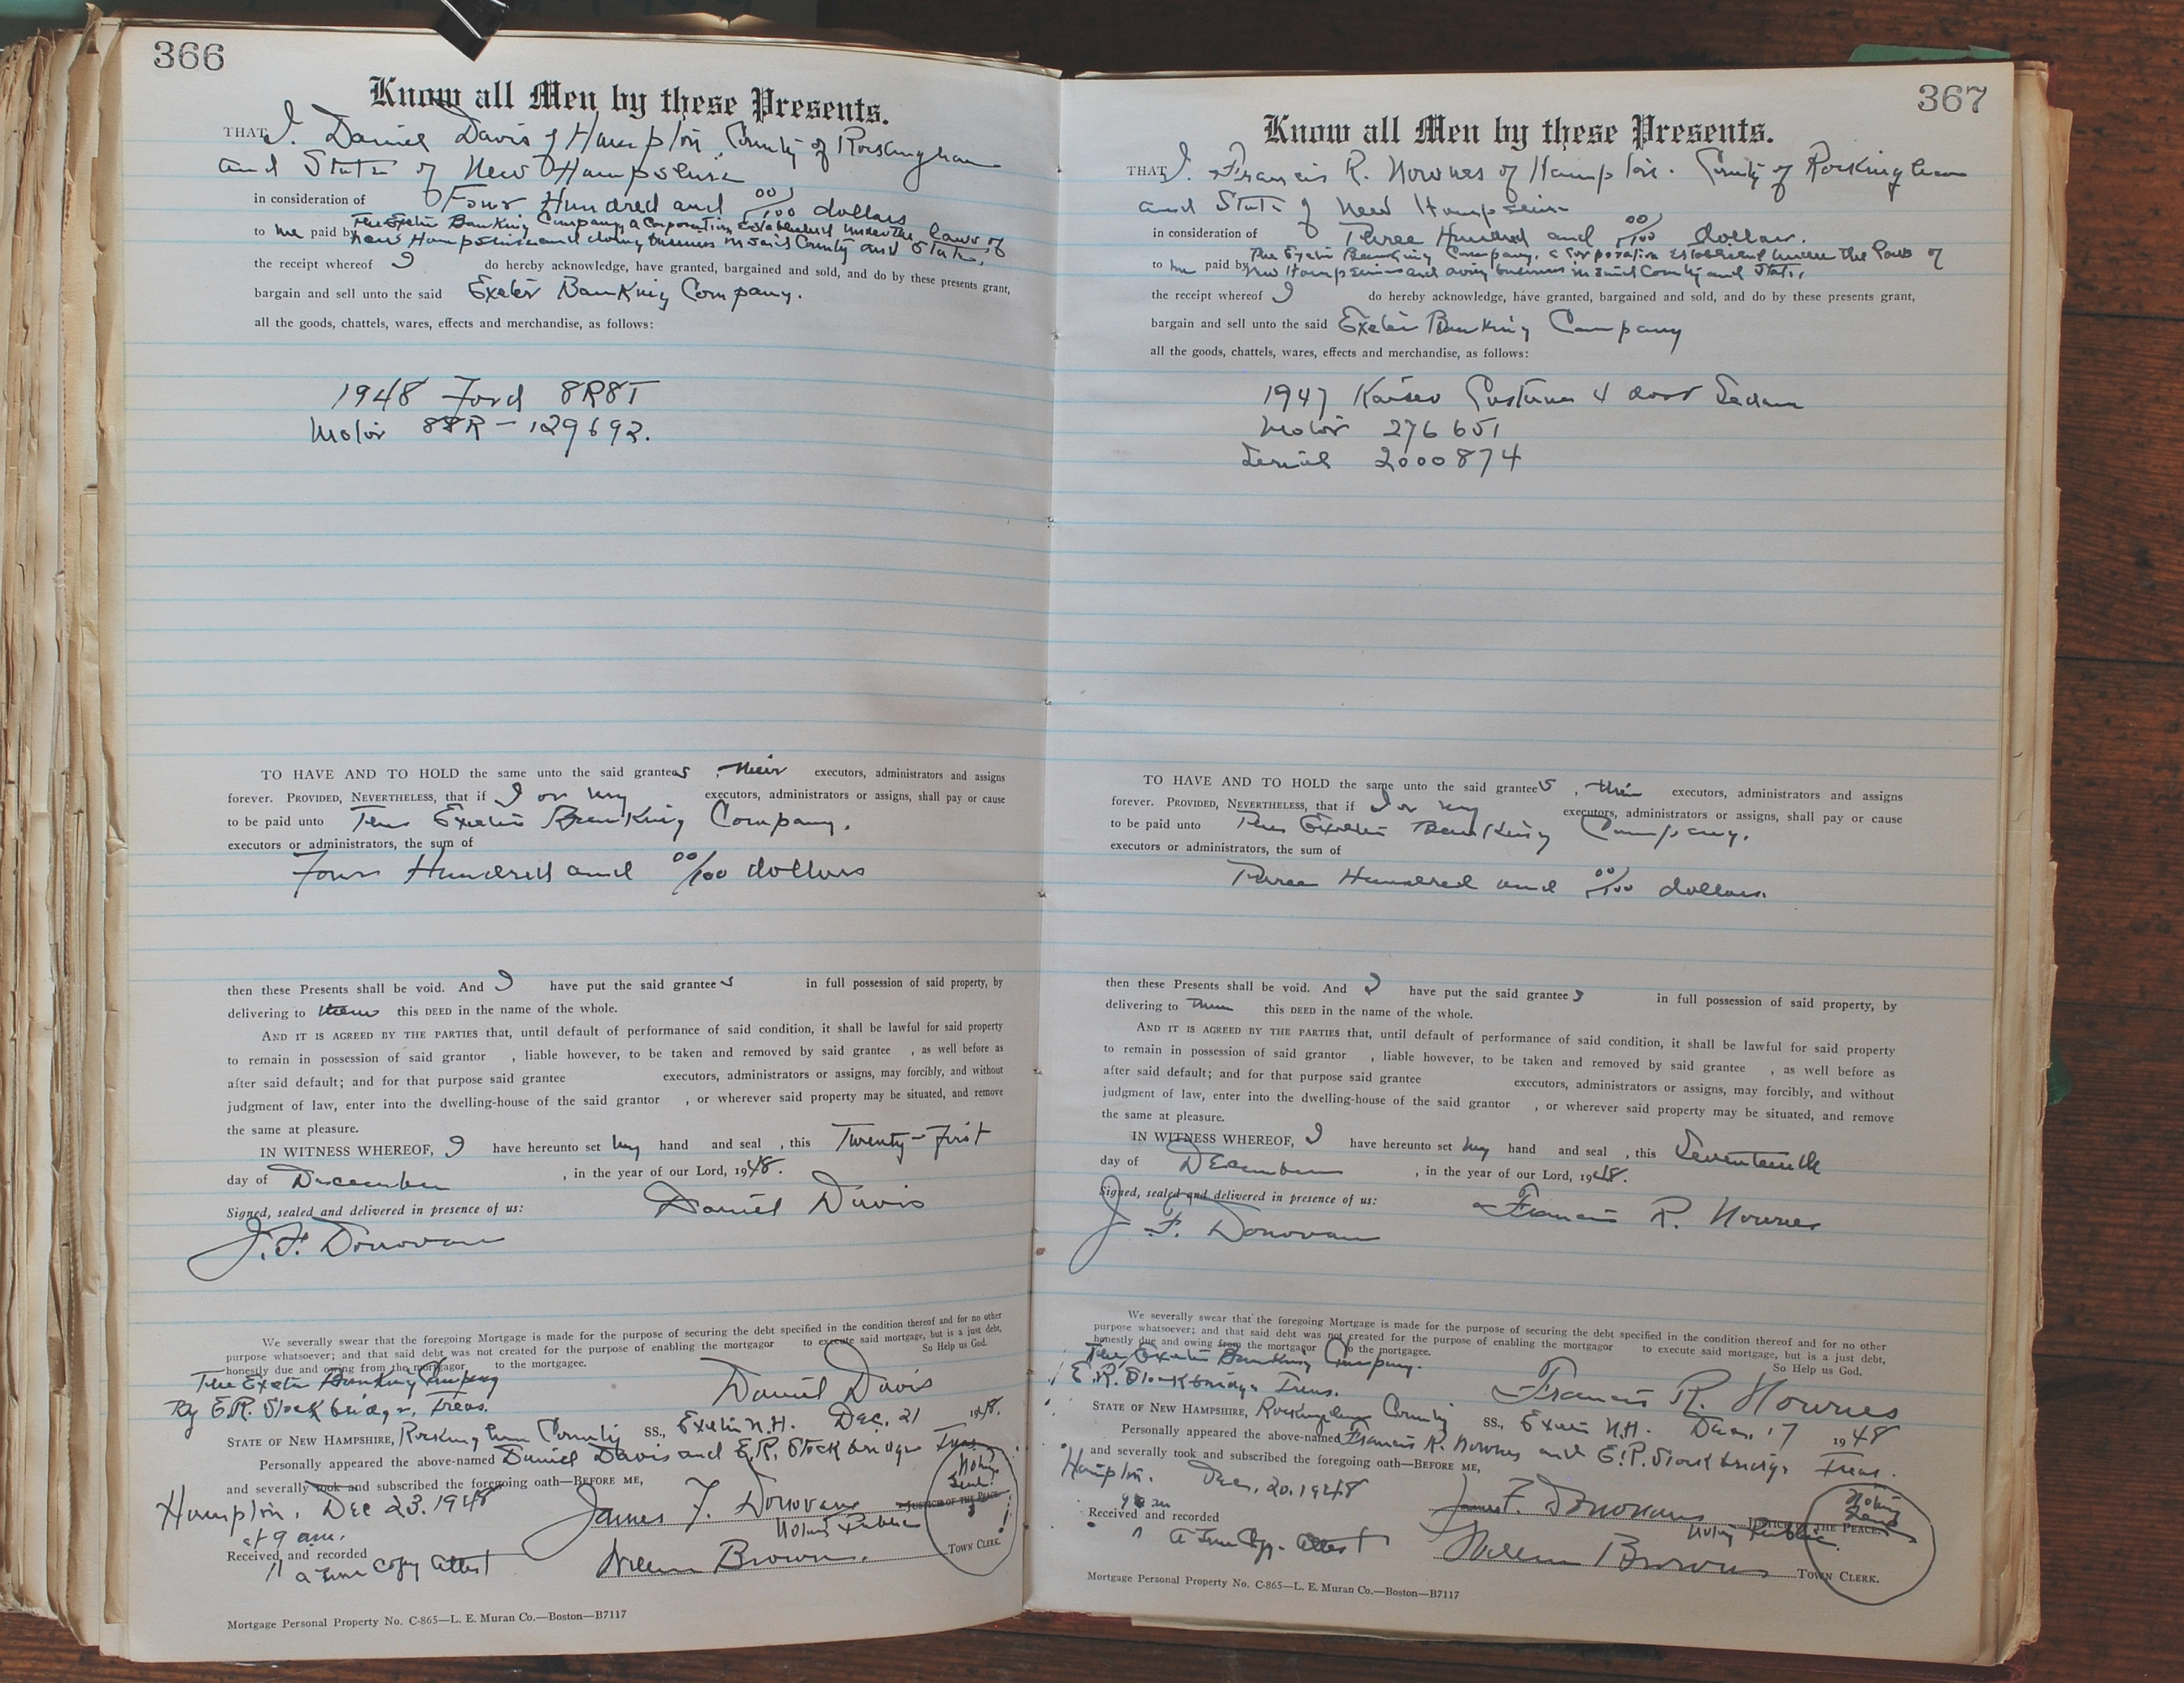 366
Know all Men by these Presents.
THAT I. Daniel Davis of Hampton. County of Rockingham
and State of New Hampshire
in consideration of Four Hundred and 00/100 dollars
to me paid by The Exeter Banking Company, a Corporation established under the laws of
New Hampshire and doing business in said County and State,
the receipt whereof I do hereby acknowledge, have granted, bargained and sold, and do by these presents grant,
bargain and sell unto the said Exeter Banking Company.
all the goods, chattels, wares, effects and merchandise, as follows:
1948 Ford 8R8T
Motor 88R-129692.
TO HAVE AND TO HOLD the same unto the said grantees, their executors, administrators and assigns
forever. PROVIDED, NEVERTHELESS, that if I or my executors, administrators or assigns, shall pay or cause
to be paid unto The Exeter Banking Company.
executors or administrators, the sum of
Four Hundred and 00/100 dollars
then these Presents shall be void. And I have put the said grantees in full possession of said property, by
delivering to them this DEED in the name of the whole.
AND IT IS AGREED BY THE PARTIES that, until default of performance of said condition, it shall be lawful for said property
to remain in possession of said grantor , liable however, to be taken and removed by said grantee , as well before as
after said default; and for that purpose said grantee executors, administrators or assigns, may forcibly, and without
judgment of law, enter into the dwelling-house of the said grantor , or wherever said property may be situated, and remove
the same at pleasure.
IN WITNESS WHEREOF, I have hereunto set my hand and seal , this Twenty-First
day of December , in the year of our Lord, 1948.
Signed, sealed and delivered in presence of us: Daniel Davis
J. F. Donovan
We severally swear that the foregoing Mortgage is made for the purpose of securing the debt specified in the condition thereof and for no other
purpose whatsoever; and that said debt was not created for the purpose of enabling the mortgagor to execute said mortgage, but is a just debt,
honestly due and owing from the mortgagor to the mortgagee. So Help us God.
The Exeter Banking Company
By E.R. Stockbridge, Treas. Daniel Davis
STATE OF NEW HAMPSHIRE, Rockingham County SS., Exeter N.H. Dec. 21 1948.
Personally appeared the above-named Daniel Davis and E.R. Stockbridge Treas.
and severally took and subscribed the foregoing oath—BEFORE ME,
Hampton. Dec 23. 1948 James F. Donovan JUSTICE OF THE PEACE.
at 9 am. Notary Public
Notary Seal
Received and recorded
a true copy attest Brown. TOWN CLERK.
Mortgage Personal Property No. C-865—L. E. Muran Co.—Boston—B7117
367
Know all Men by these Presents.
THAT I. Francis R. Nownes of Hampton. County of Rockingham
and State of New Hampshire
in consideration of Three Hundred and 00/100 dollars.
to me paid by The Exeter Banking Company, a Corporation established under the laws of
New Hampshire and doing business in said County and State,
the receipt whereof I do hereby acknowledge, have granted, bargained and sold, and do by these presents grant,
bargain and sell unto the said Exeter Banking Company
all the goods, chattels, wares, effects and merchandise, as follows:
1947 Kaiser Custom 4 door Sedan
Motor 276651
Serial 2000874
TO HAVE AND TO HOLD the same unto the said grantees, their executors, administrators and assigns
forever. PROVIDED, NEVERTHELESS, that if I or my executors, administrators or assigns, shall pay or cause
to be paid unto The Exeter Banking Company.
executors or administrators, the sum of
Three Hundred and 00/100 dollars.
then these Presents shall be void. And I have put the said grantees in full possession of said property, by
delivering to them this DEED in the name of the whole.
AND IT IS AGREED BY THE PARTIES that, until default of performance of said condition, it shall be lawful for said property
to remain in possession of said grantor , liable however, to be taken and removed by said grantee , as well before as
after said default; and for that purpose said grantee executors, administrators or assigns, may forcibly, and without
judgment of law, enter into the dwelling-house of the said grantor , or wherever said property may be situated, and remove
the same at pleasure.
IN WITNESS WHEREOF, I have hereunto set my hand and seal , this Seventeenth
day of December , in the year of our Lord, 1948.
Signed, sealed and delivered in presence of us: Francis R. Nownes
J. F. Donovan
We severally swear that the foregoing Mortgage is made for the purpose of securing the debt specified in the condition thereof and for no other
purpose whatsoever; and that said debt was not created for the purpose of enabling the mortgagor to execute said mortgage, but is a just debt,
honestly due and owing from the mortgagor to the mortgagee. So Help us God.
The Exeter Banking Company.
E.R. Stockbridge Treas. Francis R. Nownes
STATE OF NEW HAMPSHIRE, Rockingham County SS., Exeter N.H. Dec. 17 1948
Personally appeared the above-named Francis R. Nownes and E.R. Stockbridge Treas.
and severally took and subscribed the foregoing oath—BEFORE ME,
Hampton. Dec. 20. 1948 James F. Donovan JUSTICE OF THE PEACE.
9 am Notary Public
Notary Seal
Received and recorded
a true copy. attest Brown TOWN CLERK.
Mortgage Personal Property No. C-865—L. E. Muran Co.—Boston—B7117